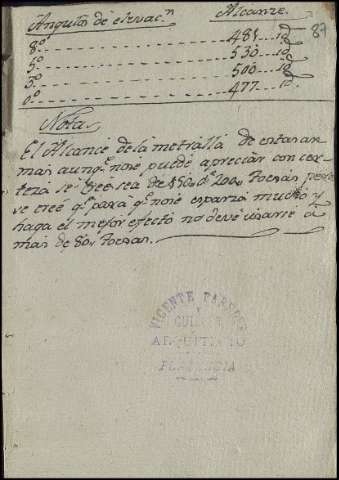 Angulos de elevac.n Alcanze.
87
8º 485 id
5º 530 id
3º 500 id
0º 477 id
Nota
El Alcance de la metralla de estas ar
mas aunq.e no se puede apreciar con cer
teza se cree sea de 150 á 200 Toesas pero
se cree q.e para q.e no se esparza mucho y
haga el mejor efecto no deve usarse á
mas de 80 Toesas.
VICENTE PAREDES
Y
GUILLEN
ARQUITECTO
PLASENCIA